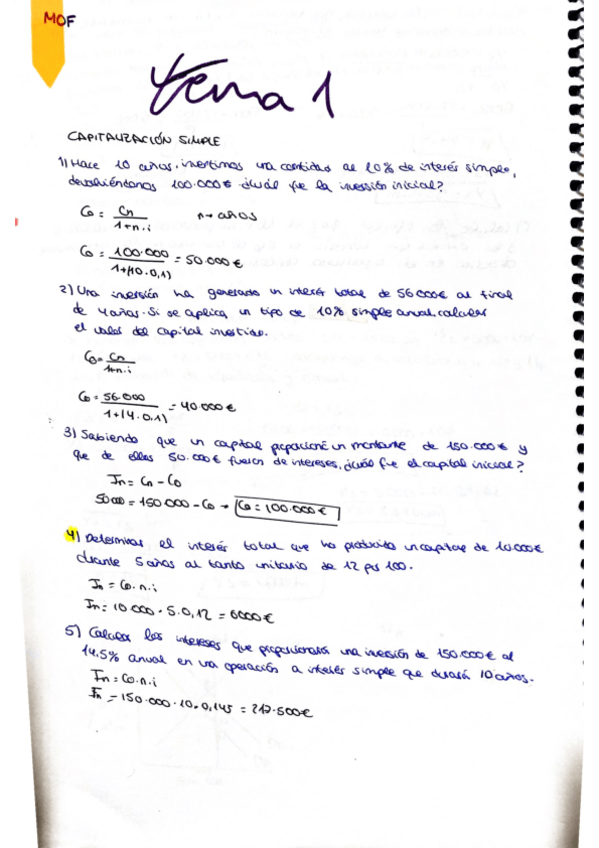 MOF
tema 1
CAPITALIZACIÓN SIMPLE
1) Hace 10 años, invertimos una cantidad al 10% de interés simple,
devolviéndonos 100.000€ ¿cuál fue la inversión inicial?
C0 = Cn / 1+n.i n → años
C0 = 100.000 / 1+(10.0,1) = 50.000€
2) Una inversión ha generado un interés total de 56.000€ al final
de 4 años. Si se aplica un tipo de 10% simple anual, calcular
el valor del capital invertido.
C0 = Cn / 1+n.i
C0 = 56.000 / 1+(4.0,1) = 40.000€
3) Sabiendo que un capital proporcionó un montante de 150.000€ y
que de ellos 50.000€ fueron de intereses, ¿cuál fue el capital inicial?
In = Cn - C0
50000 = 150.000 - C0 → C0 = 100.000€
4) Determinar el interés total que ha producido un capital de 10.000€
durante 5 años al tanto unitario de 12 por 100.
In = C0.n.i
In = 10.000.5.0,12 = 6000€
5) Calcular los intereses que proporcionará una inversión de 150.000€ al
14,5% anual en una operación a interés simple que durará 10 años.
In = C0.n.i
In = 150.000.10.0,145 = 217.500€